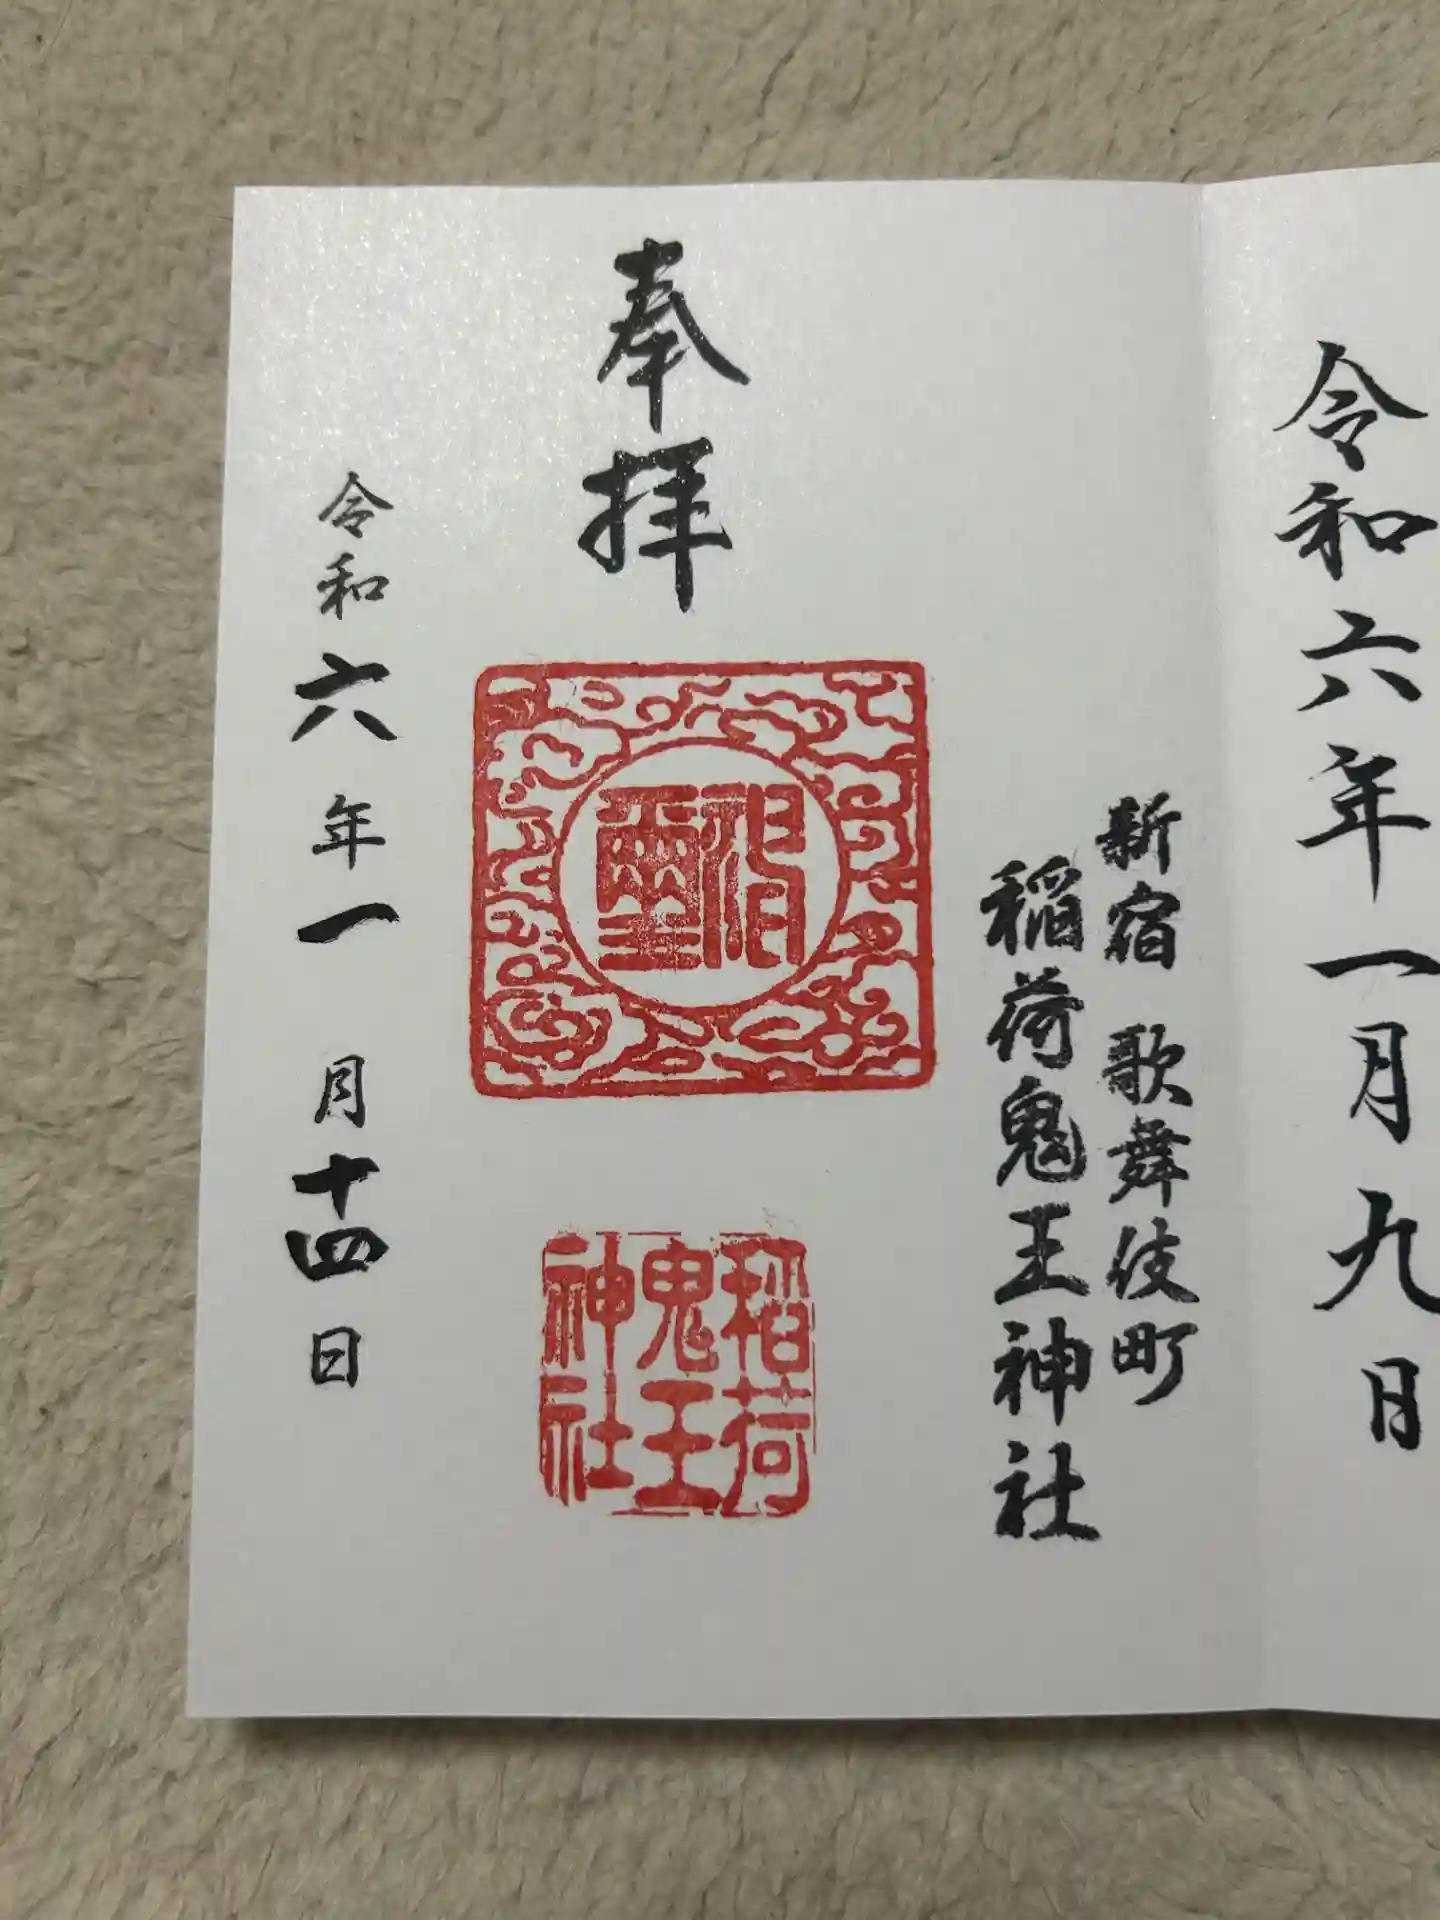 令和六年一月九日
新宿 歌舞伎町
稲荷鬼王神社
奉拝
稲荷
鬼王
神社
令和六年一月十四日